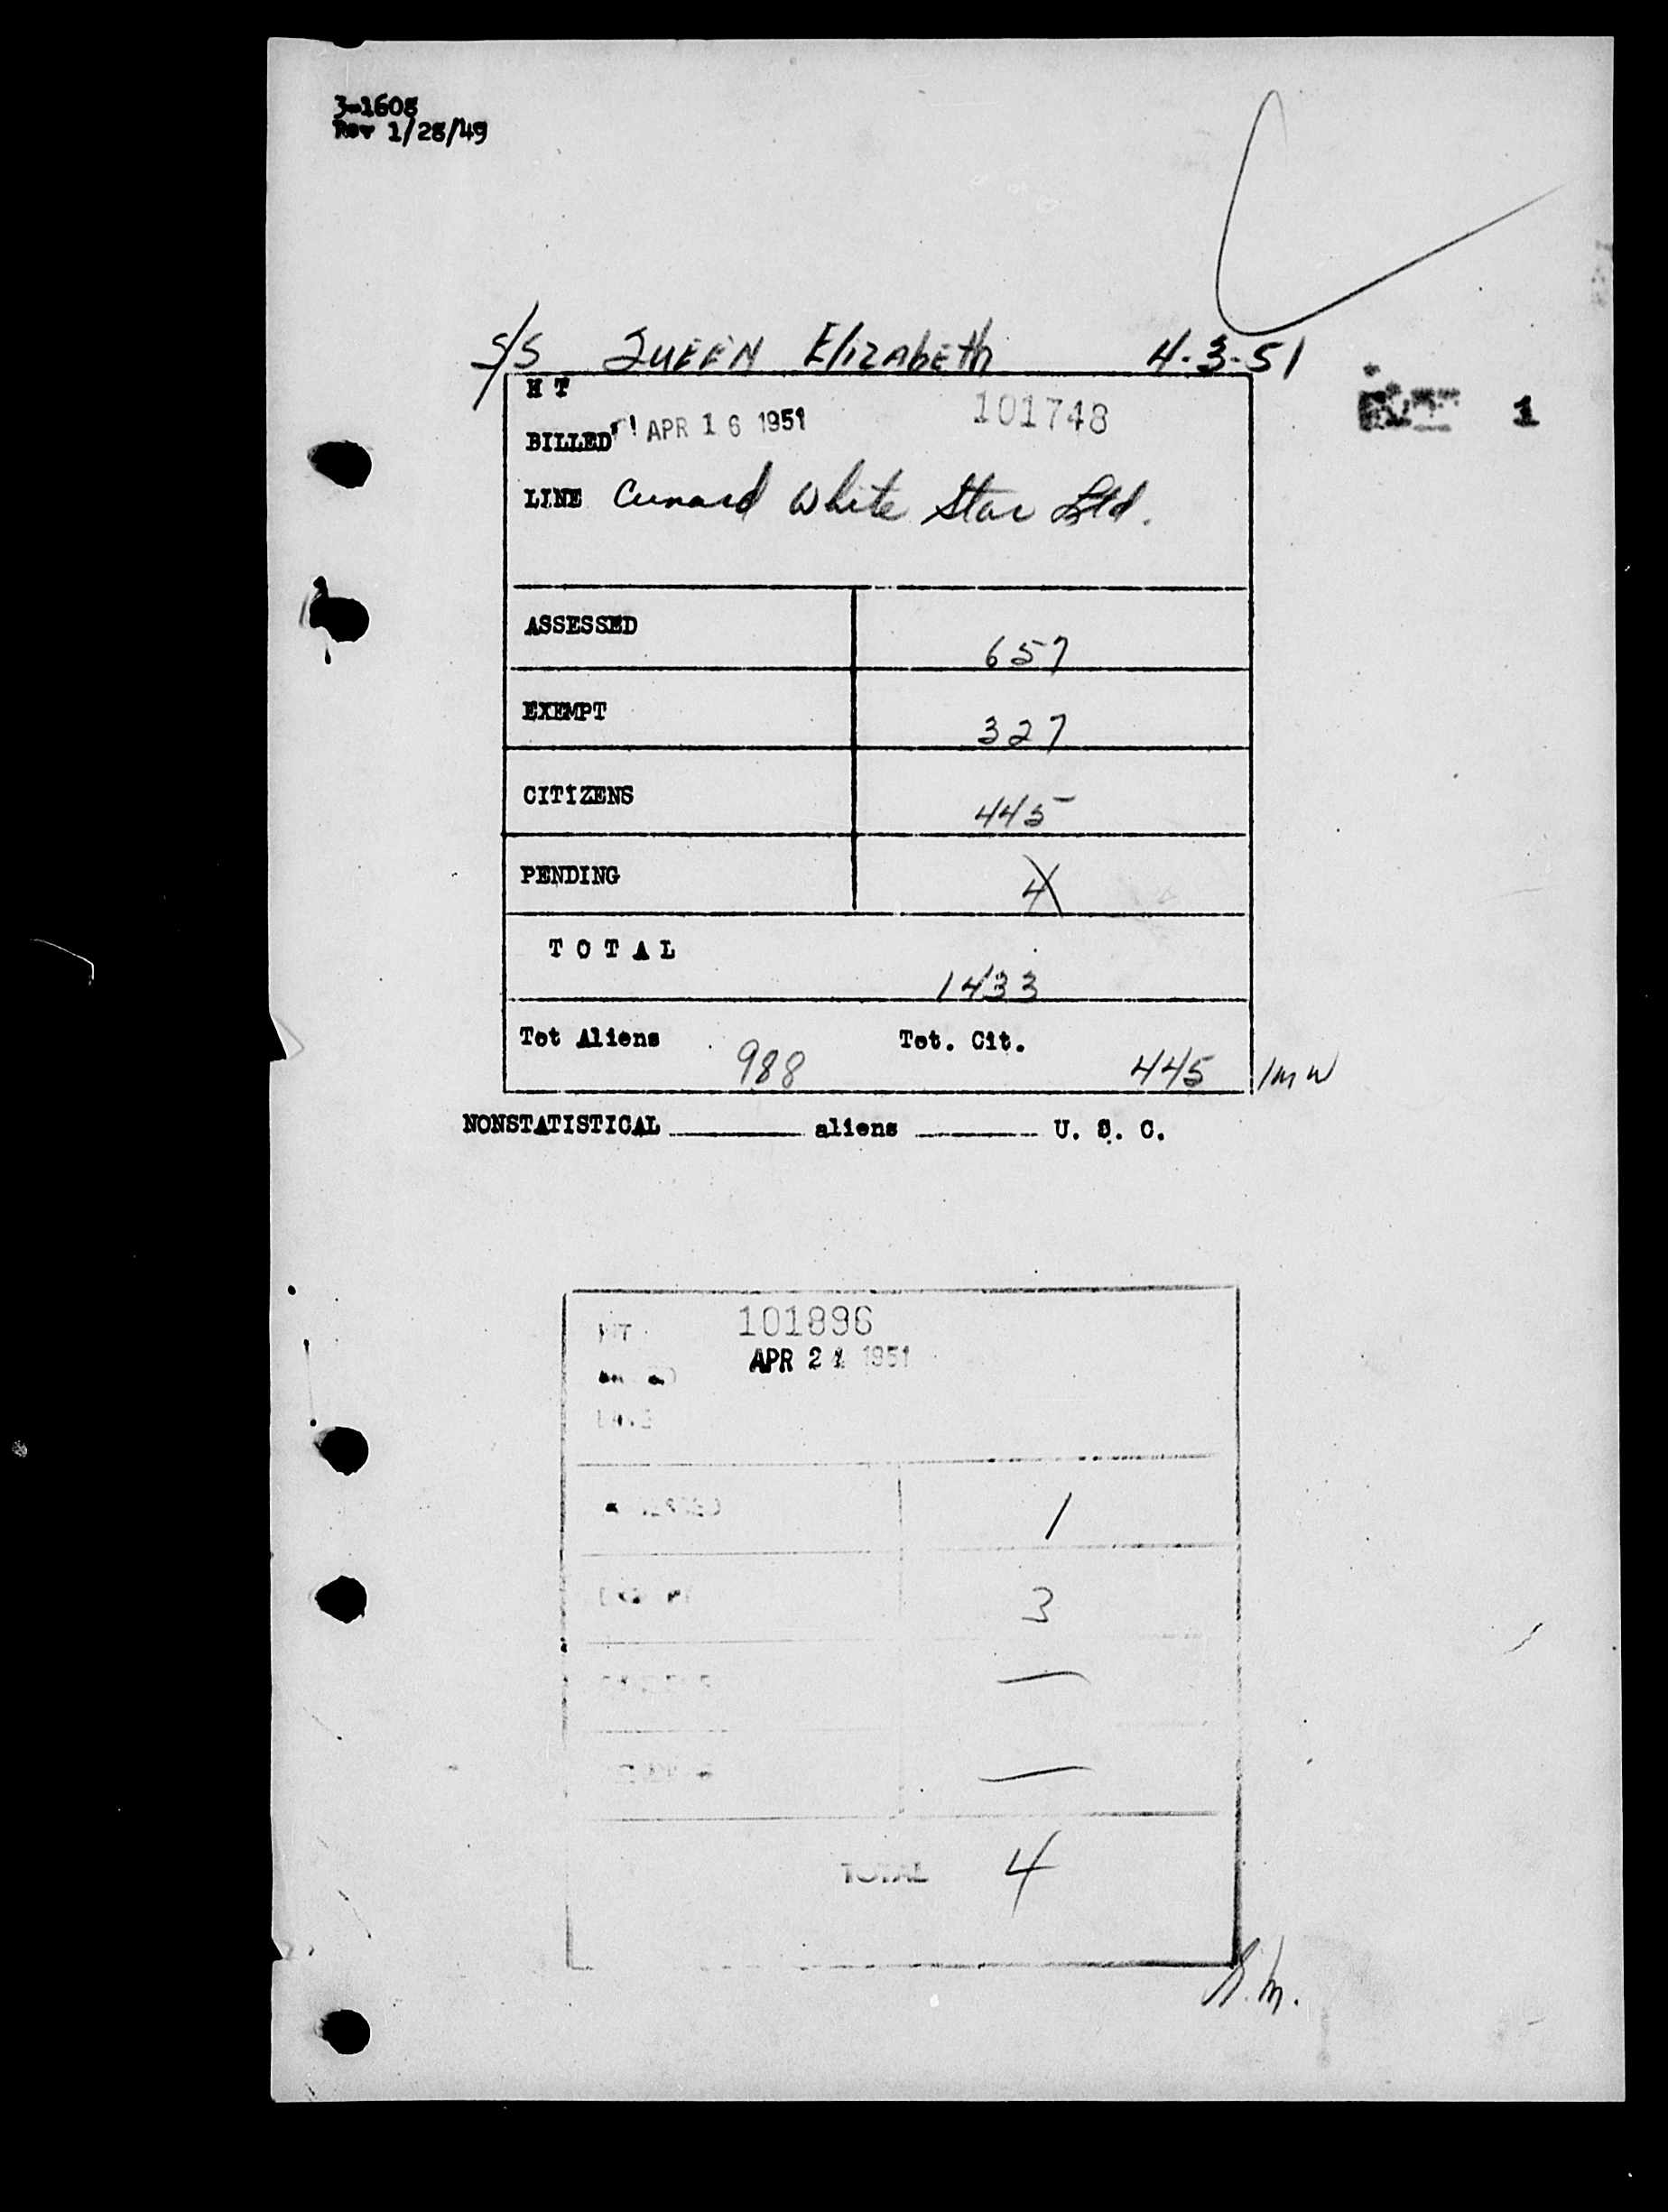 3-1608
Rev 1/28/49
S/S QUEEN ElizAbETh 4-3-51
H T
BILLED APR 16 1951 101748
1
LINE Cunard White Star Ltd.
ASSESSED 657
EXEMPT 327
CITIZENS 445
PENDING 4
T O T A L 1433
Tot Aliens 988 Tot. Cit. 445 /mw
NONSTATISTICAL ________ aliens ________ U. S. C.
HT 101896
APR 24 1951
LINE
1
3
—
—
TOTAL 4